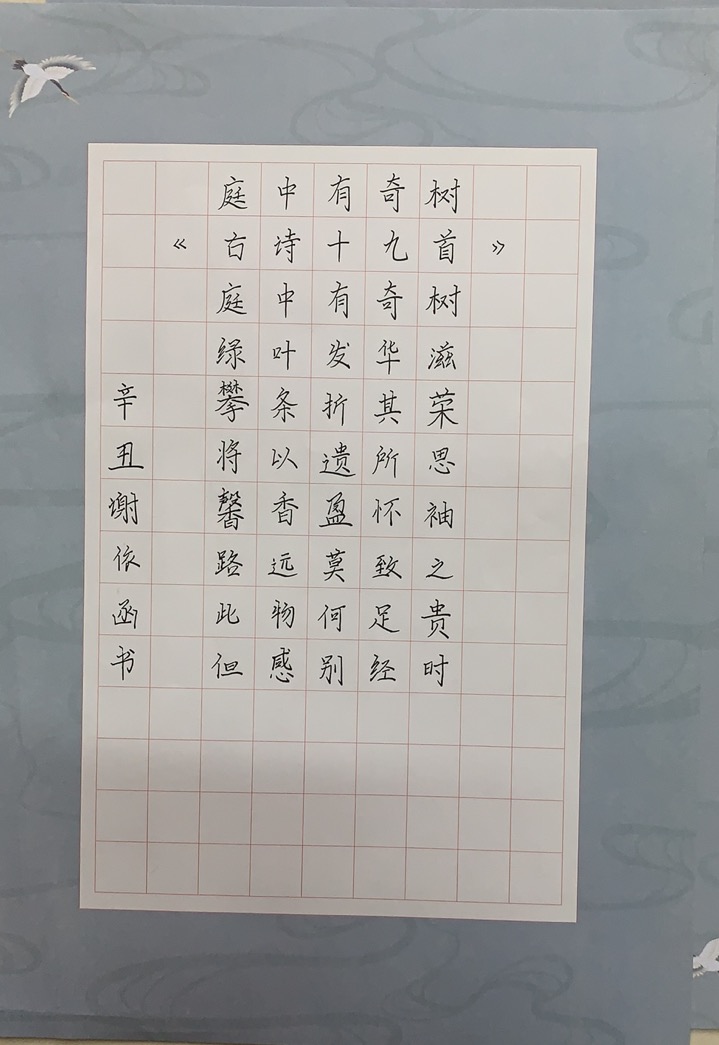 庭中有奇树
《古诗十九首》
庭中有奇树
绿叶发华滋
攀条折其荣
将以遗所思
馨香盈怀袖
路远莫致之
此物何足贵
但感别经时
辛丑谢依函书